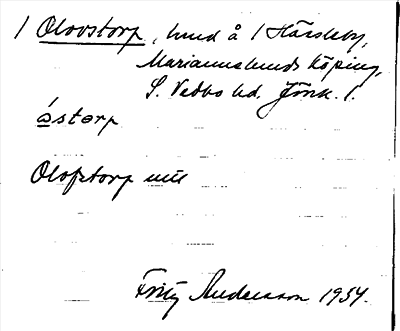 / Olovstorp, hmd å / Härsleby,
Mariannelunds köping,
S. Vedbo hd. Jönk. l.
ástərp
Olofstorp
Fritz Andersson 1934.